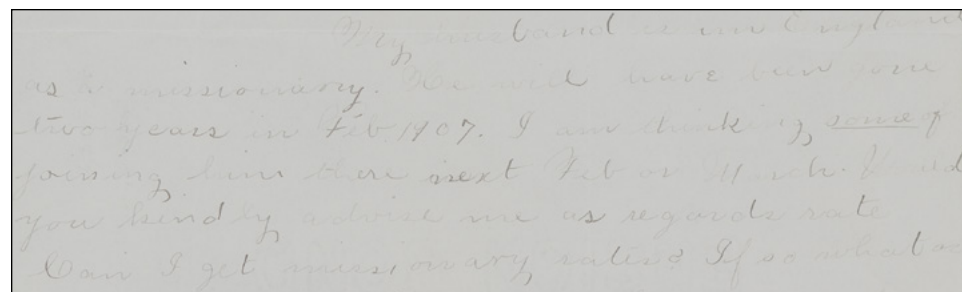 My husband is in England
as a missionary. He will have been gone
two years in Feb. 1907. I am thinking some of
joining him there next Feb or March. Would
you kindly advise me as regards rate
Can I get missionary rates? If so what